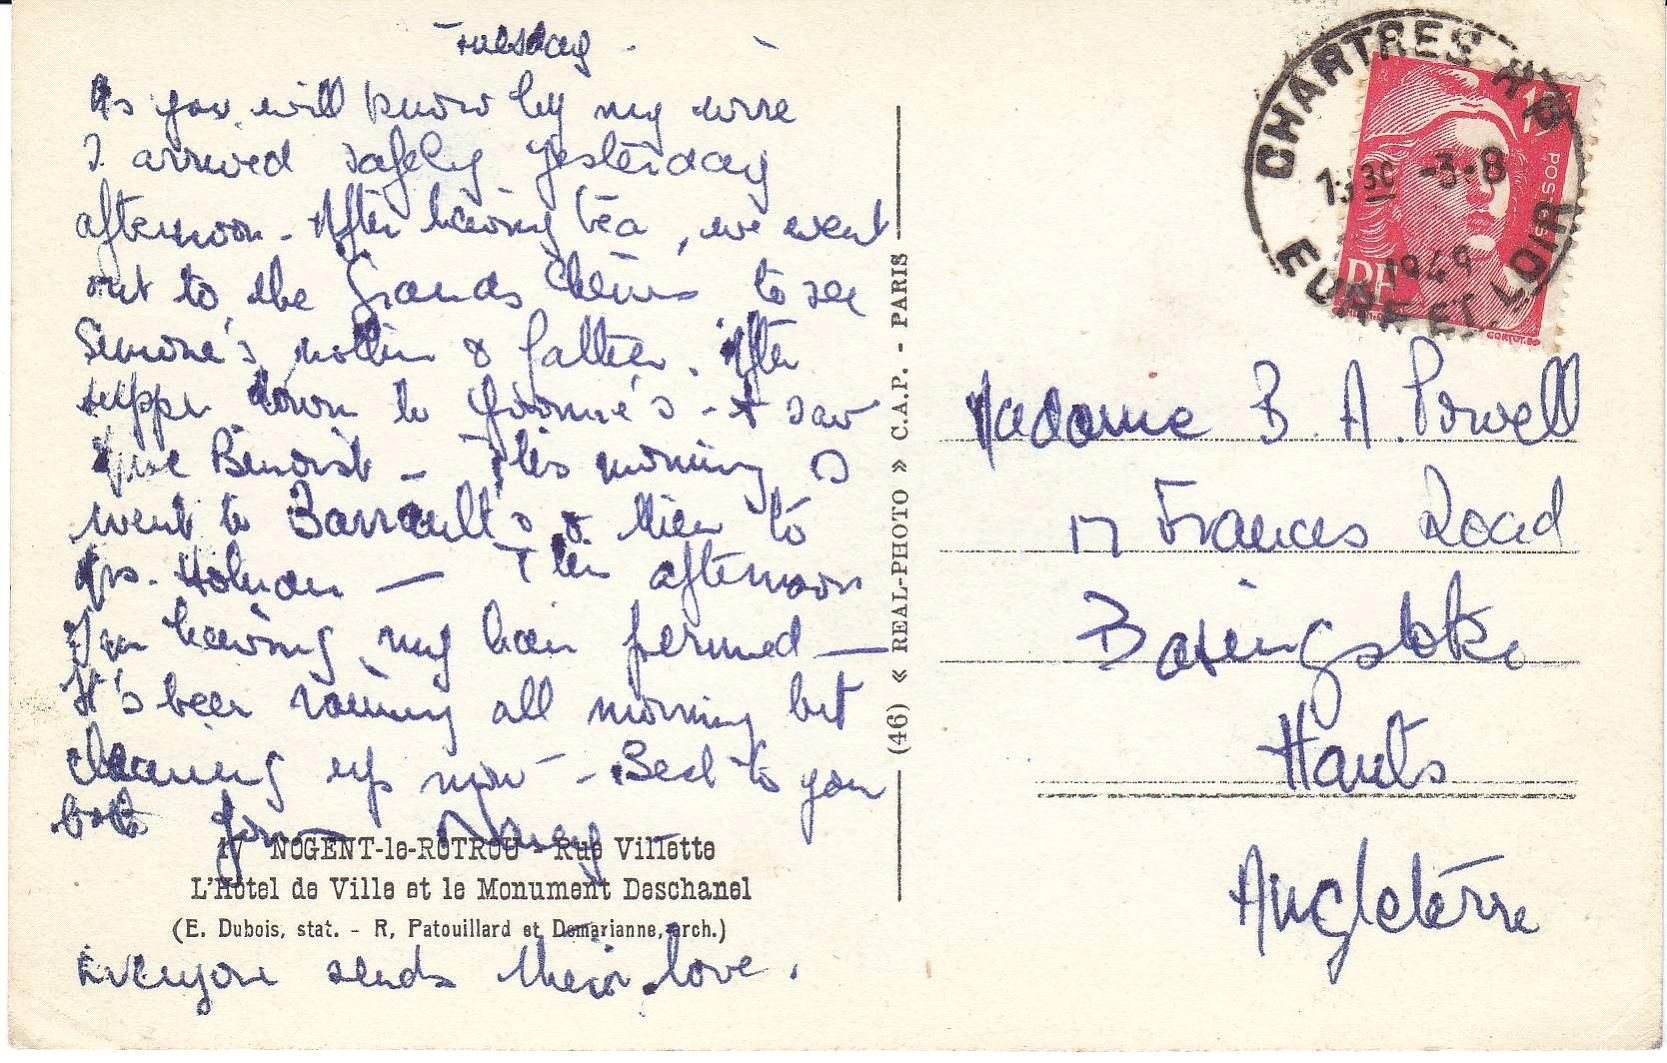 Tuesday.
As you will know by my wire
I arrived safely yesterday
afternoon. After having tea, we went
out to the Grands Chênes to see
Simone's mother & father. After
supper down to Yvonne's - & saw
Mme Benoist - This morning I
went to Barrault's & then to
Mrs. Holman — This afternoon
I'm having my hair permed —
It's been raining all morning but
clearing up now - Best to you
both
Nancy
17 NOGENT-le-ROTROU - Rue Villette
L'Hôtel de Ville et le Monument Deschanel
(E. Dubois, stat. - R, Patouillard et Demarianne, arch.)
Everyone sends their love.
(46) « REAL-PHOTO » C.A.P. - PARIS
CHARTRES R.P.
30 -3-8
1949
EURE ET LOIR
15F
POSTES
RF
GANDON
CORTOT
Madame B. A. Powell
17 Frances Road
Basingstoke
Hants
Angleterre